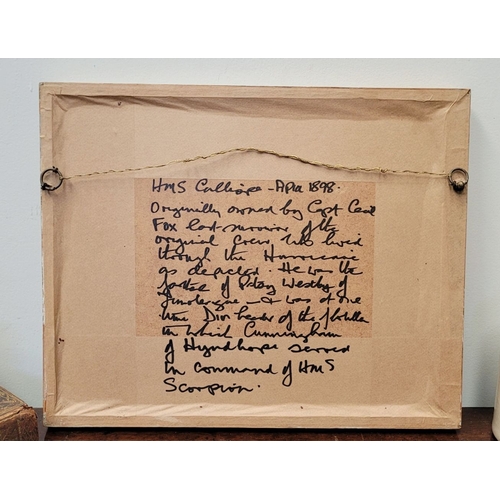 HMS Calliope - Apia 1898.
Originally owned by Capt Cecil
Fox last survivor of the
original crew who lived
through the Hurricane
as depicted. He was the
father of Patsy Westby of
- & was at one
time Div leader of the flotilla
in which Cunningham
of Hyndhope served
in command of HMS
Scorpion.